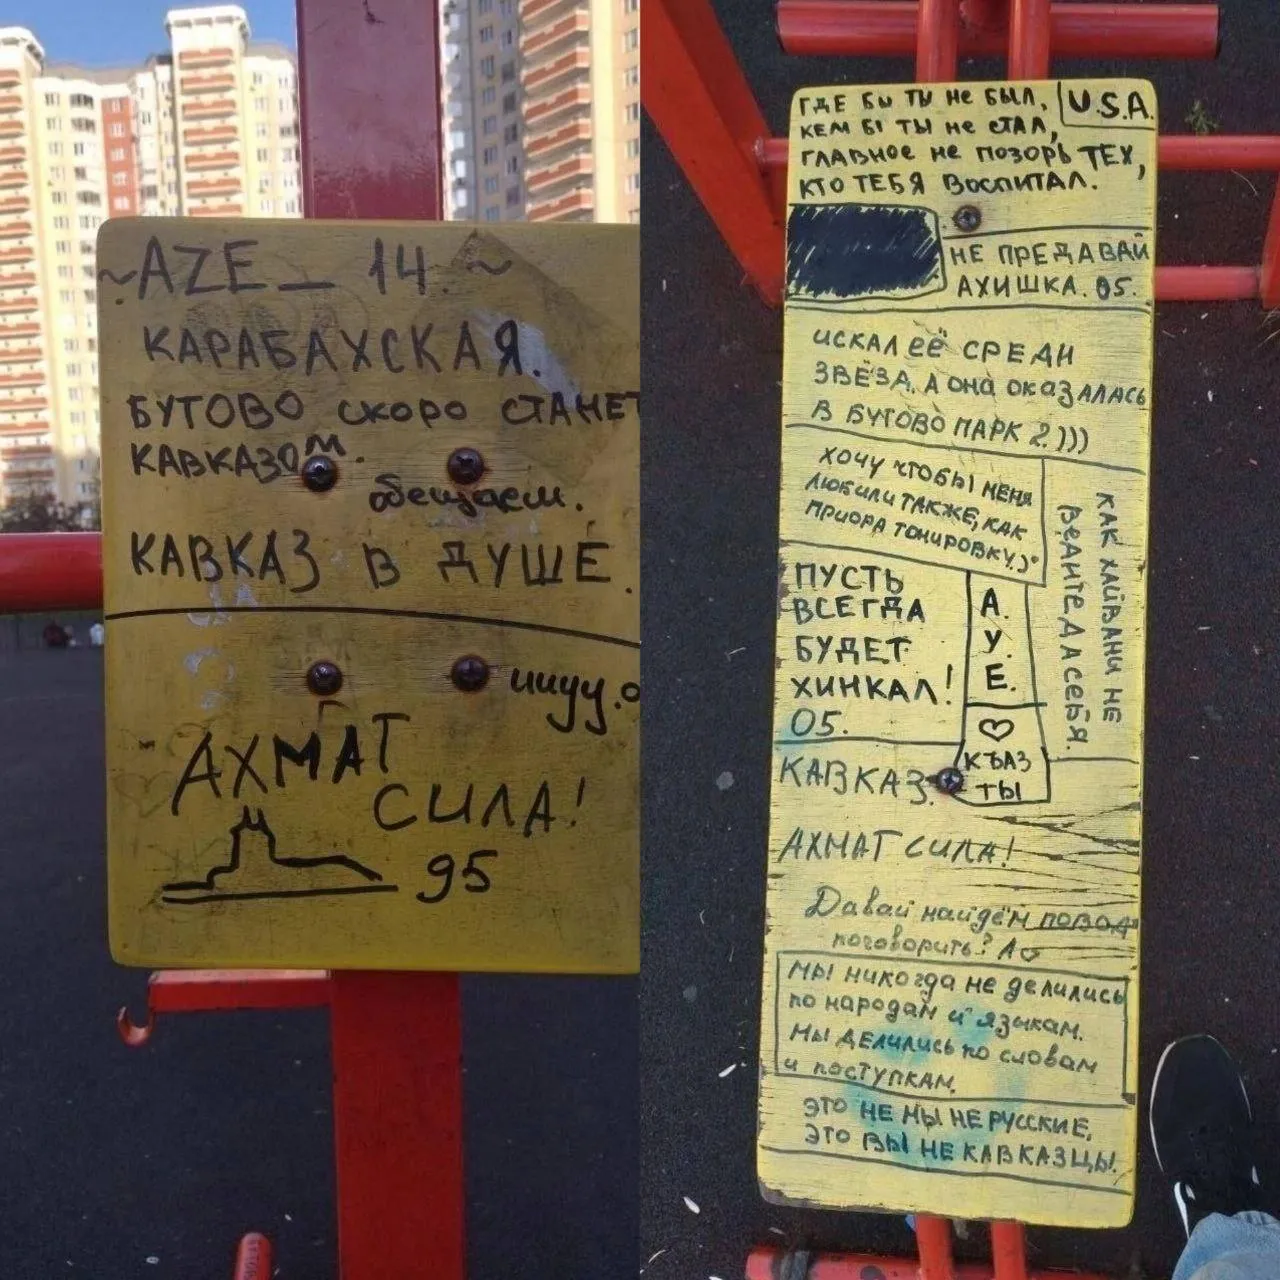 ~AZE_14~
КАРАБАХСКАЯ.
БУТОВО скоро СТАНЕТ
КАВКАЗОМ.
обещаем.
КАВКАЗ В ДУШЕ.
АХМАТ
СИЛА!
95
ГДЕ БЫ ТЫ НЕ БЫЛ,
КЕМ БЫ ТЫ НЕ СТАЛ,
ГЛАВНОЕ НЕ ПОЗОРЬ ТЕХ,
КТО ТЕБЯ ВОСПИТАЛ.
U.S.A.
НЕ ПРЕДАВАЙ
АХИШКА. 05.
ИСКАЛ ЕЁ СРЕДИ
ЗВЁЗД, А ОНА ОКАЗАЛАСЬ
В БУТОВО ПАРК 2.)))
ХОЧУ ЧТОБЫ МЕНЯ
ЛЮБИЛИ ТАКЖЕ, КАК
ПРИОРА ТОНИРОВКУ.)
КАК ХАЙВАНИ НЕ
ВЕДИТЕ ДА СЕБЯ.
ПУСТЬ
ВСЕГДА
БУДЕТ
ХИНКАЛ!
05.
А.
У.
Е.
♡
КЪАЗ
ТЫ
КАВКАЗ.
АХМАТ СИЛА!
Давай найдём повод
поговорить?
МЫ НИКОГДА НЕ ДЕЛИЛИСЬ
ПО НАРОДАМ И ЯЗЫКАМ.
МЫ ДЕЛИЛИСЬ ПО СЛОВАМ
И ПОСТУПКАМ.
ЭТО НЕ МЫ НЕ РУССКИЕ,
ЭТО ВЫ НЕ КАВКАЗЦЫ.